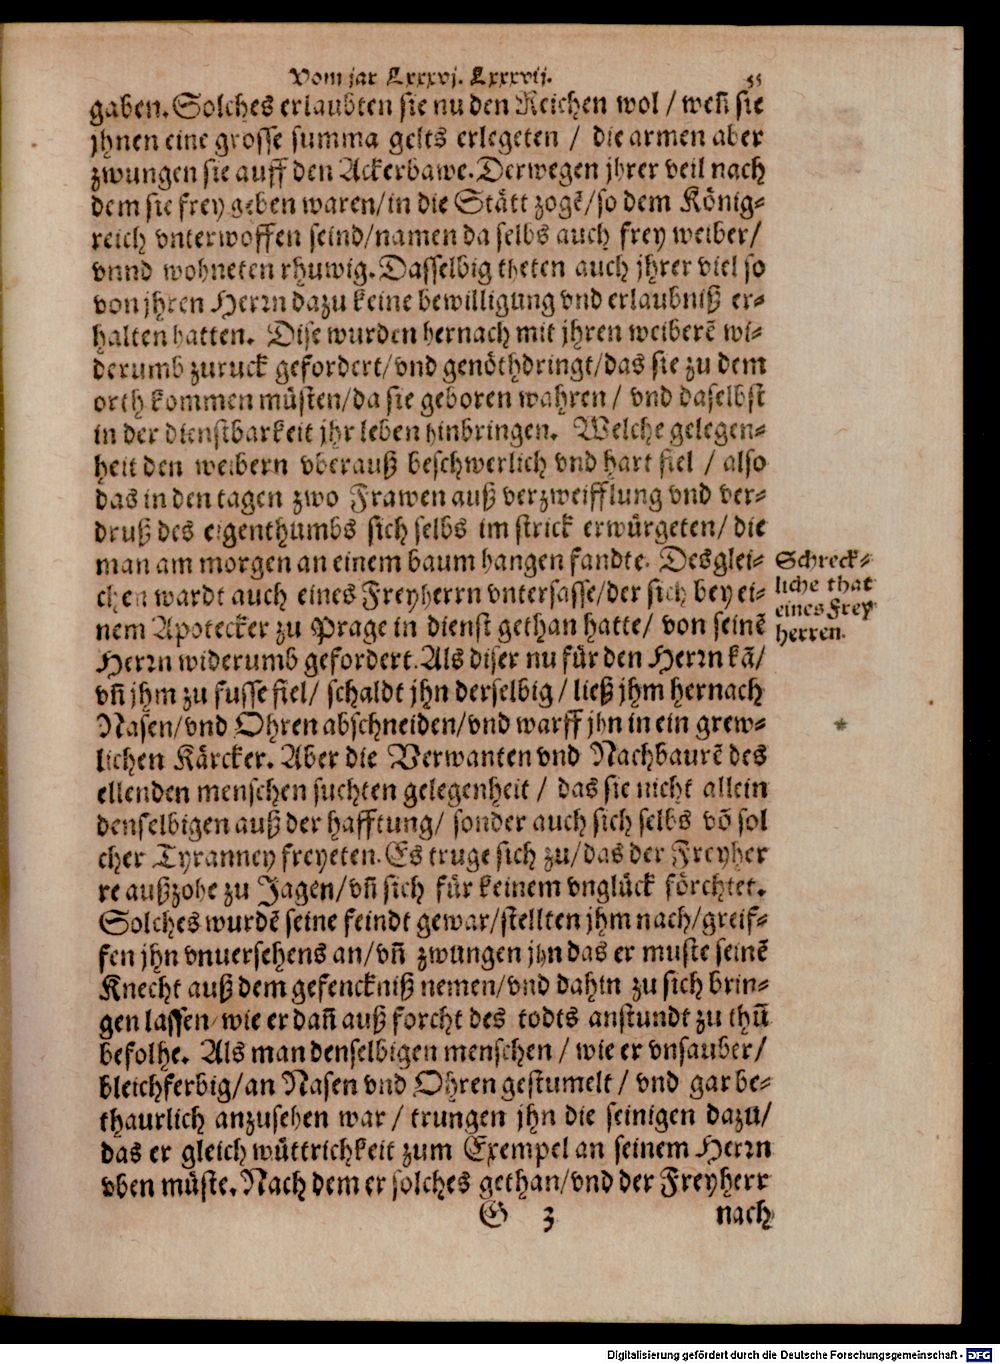 Vom jar Lxxxvj. Lxxxvij. 55
gaben. Solches erlaubten sie nu den Reichen wol / weñ sie
jhnen eine grosse summa gelts erlegeten / die armen aber
zwungen sie auff den Ackerbawe. Derwegen jhrer veil nach
dem sie frey geben waren/in die Stätt zogẽ/so dem König⸗
reich vnterwoffen seind/namen da selbs auch frey weiber/
vnnd wohneten rhuwig. Dasselbig theten auch jhrer viel so
von jhren Herrn dazu keine bewilligung vnd erlaubniß er⸗
halten hatten. Dise wurden hernach mit jhren weiberẽ wi⸗
derumb zuruck gefordert/vnd genöthdringt/das sie zu dem
orth kommen müsten/da sie geboren wahren / vnd daselbst
in der dienstbarkeit jhr leben hinbringen. Welche gelegen⸗
heit den weibern vberauß beschwerlich vnd hart fiel / also
das in den tagen zwo Frawen auß verzweifflung vnd ver⸗
druß des eigenthumbs sich selbs im strick erwürgeten/ die
man am morgen an einem baum hangen fandte. Desglei⸗
chen wardt auch eines Freyherrn vntersasse/der sich bey ei⸗
nem Apotecker zu Prage in dienst gethan hatte/ von seinẽ
Herrn widerumb gefordert. Als diser nu für den Herrn kã/
vñ jhm zu fusse fiel/ schaldt jhn derselbig / ließ jhm hernach
Nasen/vnd Ohren abschneiden/vnd warff jhn in ein grew⸗
lichen Kärcker. Aber die Verwanten vnd Nachbaurẽ des
ellenden menschen suchten gelegenheit / das sie nicht allein
denselbigen auß der hafftung/ sonder auch sich selbs võ sol
cher Tyranney freyeten. Es truge sich zu/das der Freyher
re außzohe zu Jagen/vñ sich für keinem vnglück förchtet.
Solches wurdẽ seine feindt gewar/stellten jhm nach/greif⸗
fen jhn vnuersehens an/vñ zwungen jhn das er muste seinẽ
Knecht auß dem gefenckniß nemen/vnd dahin zu sich brin⸗
gen lassen/wie er dañ auß forcht des todts anstundt zu thũ
befolhe. Als man denselbigen menschen / wie er vnsauber/
bleichferbig/an Nasen vnd Ohren gestumelt / vnd gar be⸗
thaurlich anzusehen war / trungen jhn die seinigen dazu/
das er gleich wüttrichkeit zum Exempel an seinem Herrn
vben müste. Nach dem er solches gethan/vnd der Freyherr
G 3 nach
Schreck⸗
liche that
eines Frey
herren.
Digitalisierung gefördert durch die Deutsche Forschungsgemeinschaft - DFG